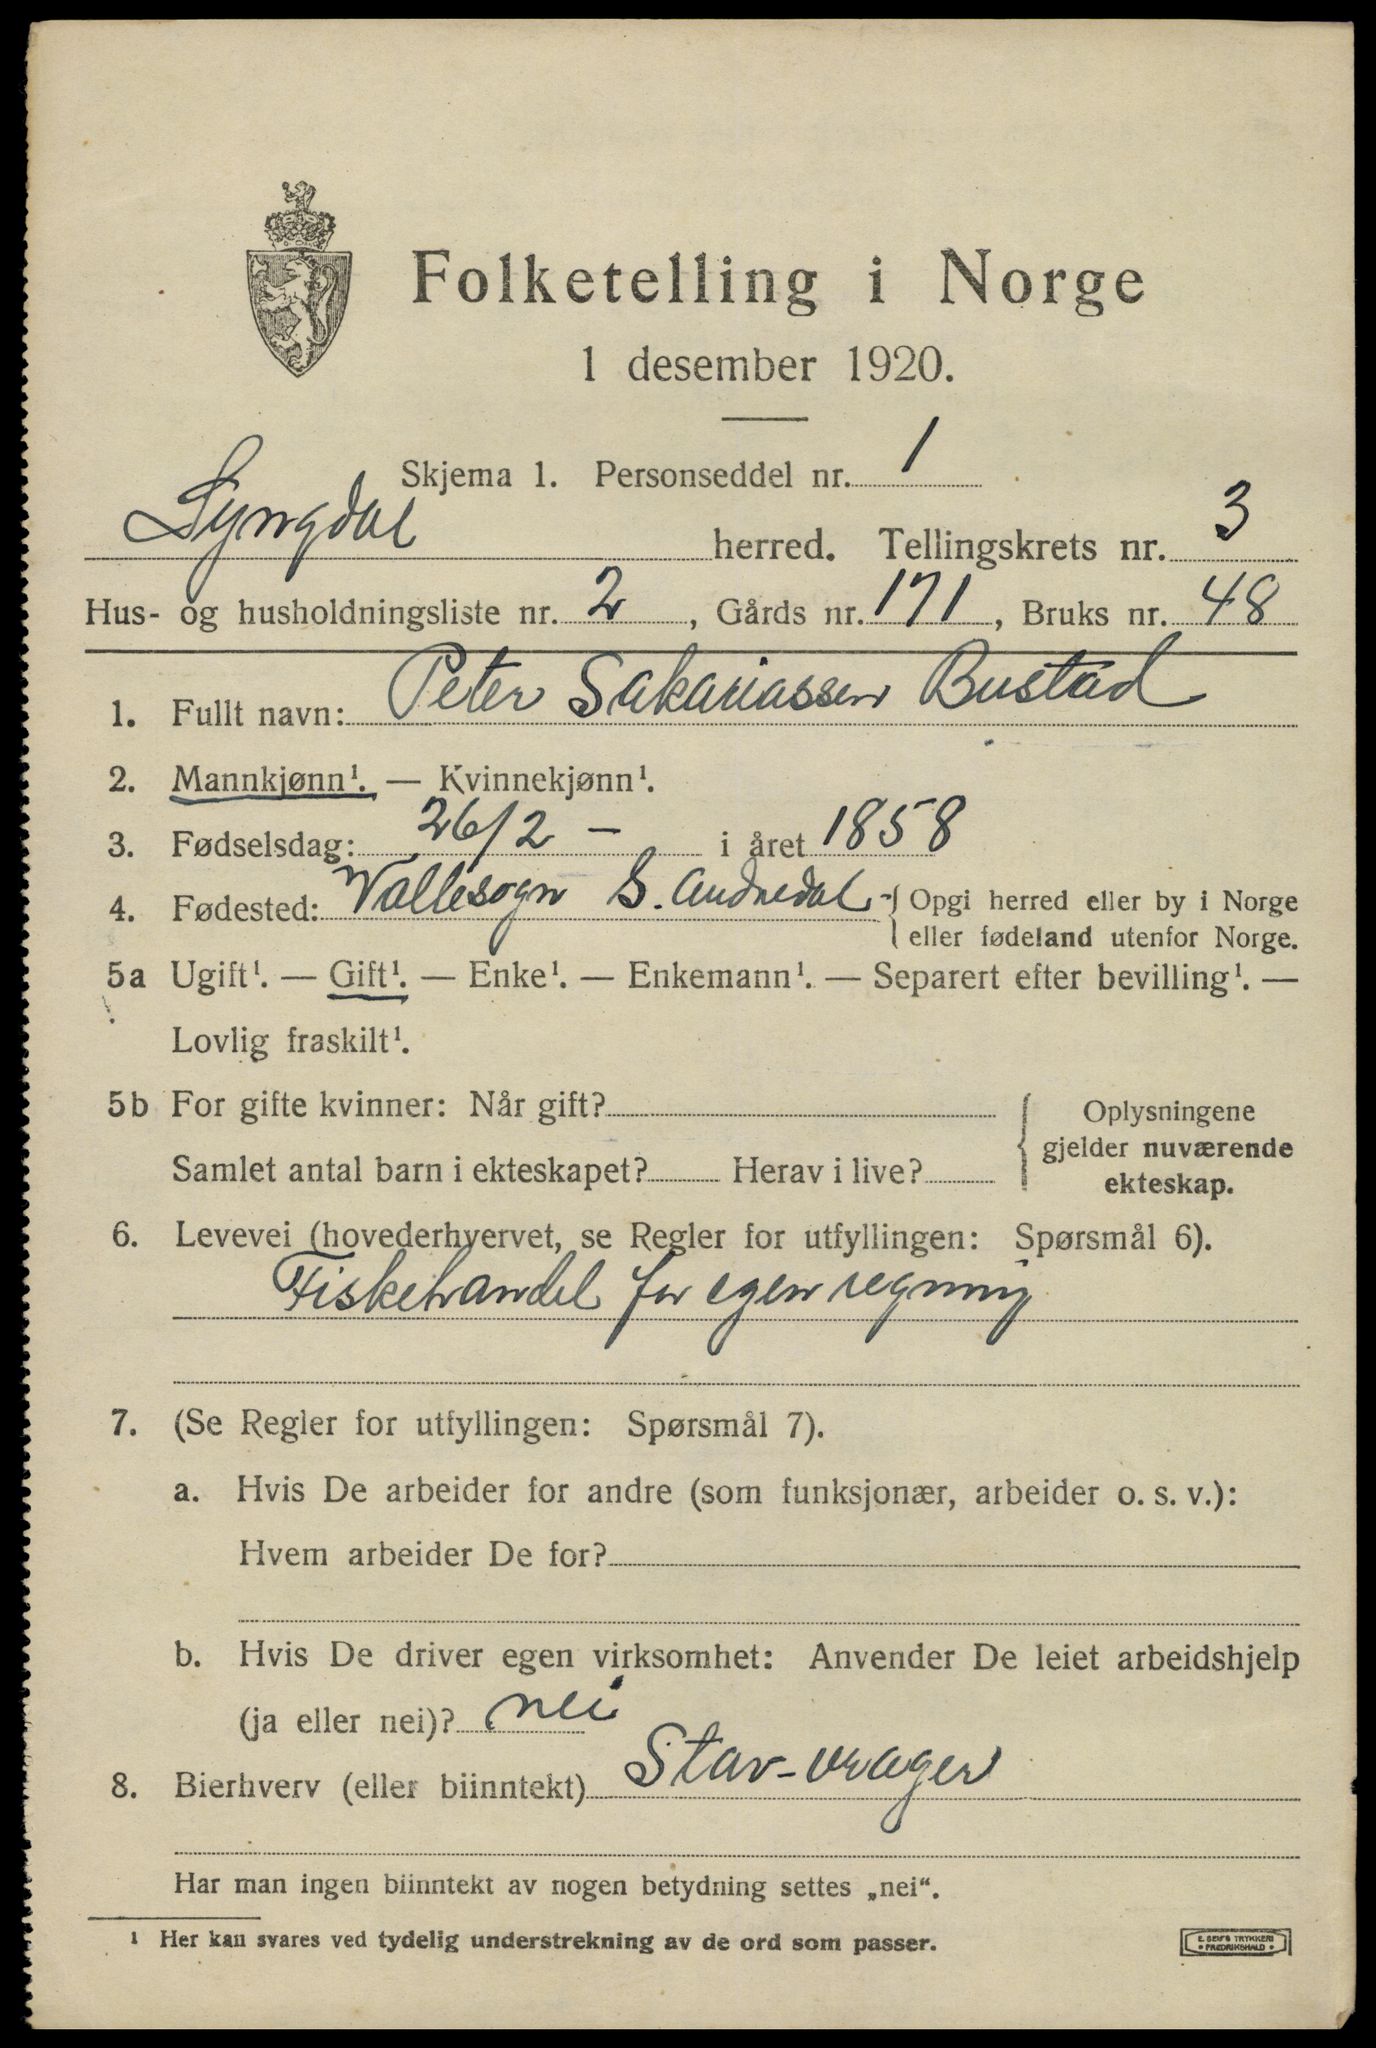 Folketelling i Norge
1 desember 1920.
Skjema 1. Personseddel nr. 1
Lyngdal herred. Tellingskrets nr. 3
Hus- og husholdningsliste nr. 2, Gårds nr. 171, Bruks nr. 48
1. Fullt navn: Peter Sakariassen Bustad
2. Mannkjønn¹. — Kvinnekjønn¹.
3. Fødselsdag: 26/2 - i året 1858
4. Fødested: Vallesogn S. Audnedal - { Opgi herred eller by i Norge
eller fødeland utenfor Norge.
5a Ugift¹. — Gift¹. — Enke¹. — Enkemann¹. — Separert efter bevilling¹. —
Lovlig fraskilt¹.
5b For gifte kvinner: Når gift? Oplysningene
gjelder nuværende
Samlet antal barn i ekteskapet? Herav i live? ekteskap.
6. Levevei (hovederhvervet, se Regler for utfyllingen: Spørsmål 6).
Fiskehandel for egen regning
7. (Se Regler for utfyllingen: Spørsmål 7).
a. Hvis De arbeider for andre (som funksjonær, arbeider o. s. v.):
Hvem arbeider De for?
b. Hvis De driver egen virksomhet: Anvender De leiet arbeidshjelp
(ja eller nei)? nei
8. Bierhverv (eller biinntekt) Stav-vrager
Har man ingen biinntekt av nogen betydning settes „nei“.
¹ Her kan svares ved tydelig understrekning av de ord som passer.
E. SEM'S TRYKKERI
• FREDRIKSHALD •